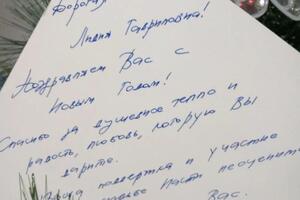 Дорогая
Лилия Гавриловна!
Поздравляем Вас с
Новым Годом!
Спасибо за душевное тепло и
радость, любовь, которую Вы
дарите.
поддержка и участие
Насти неоценима
Вас.